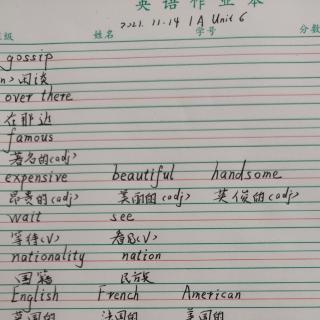 英语作业本
2021.11.14 1A Unit 6
班级 姓名 学号 分数
gossip
n>闲谈
over there
在那边
famous
著名的(adj>
expensive beautiful handsome
昂贵的(adj> 美丽的(adj> 英俊的(adj>
wait see
等待(V> 看见(V>
nationality nation
国籍 民族
English French American
英国的 法国的 美国的